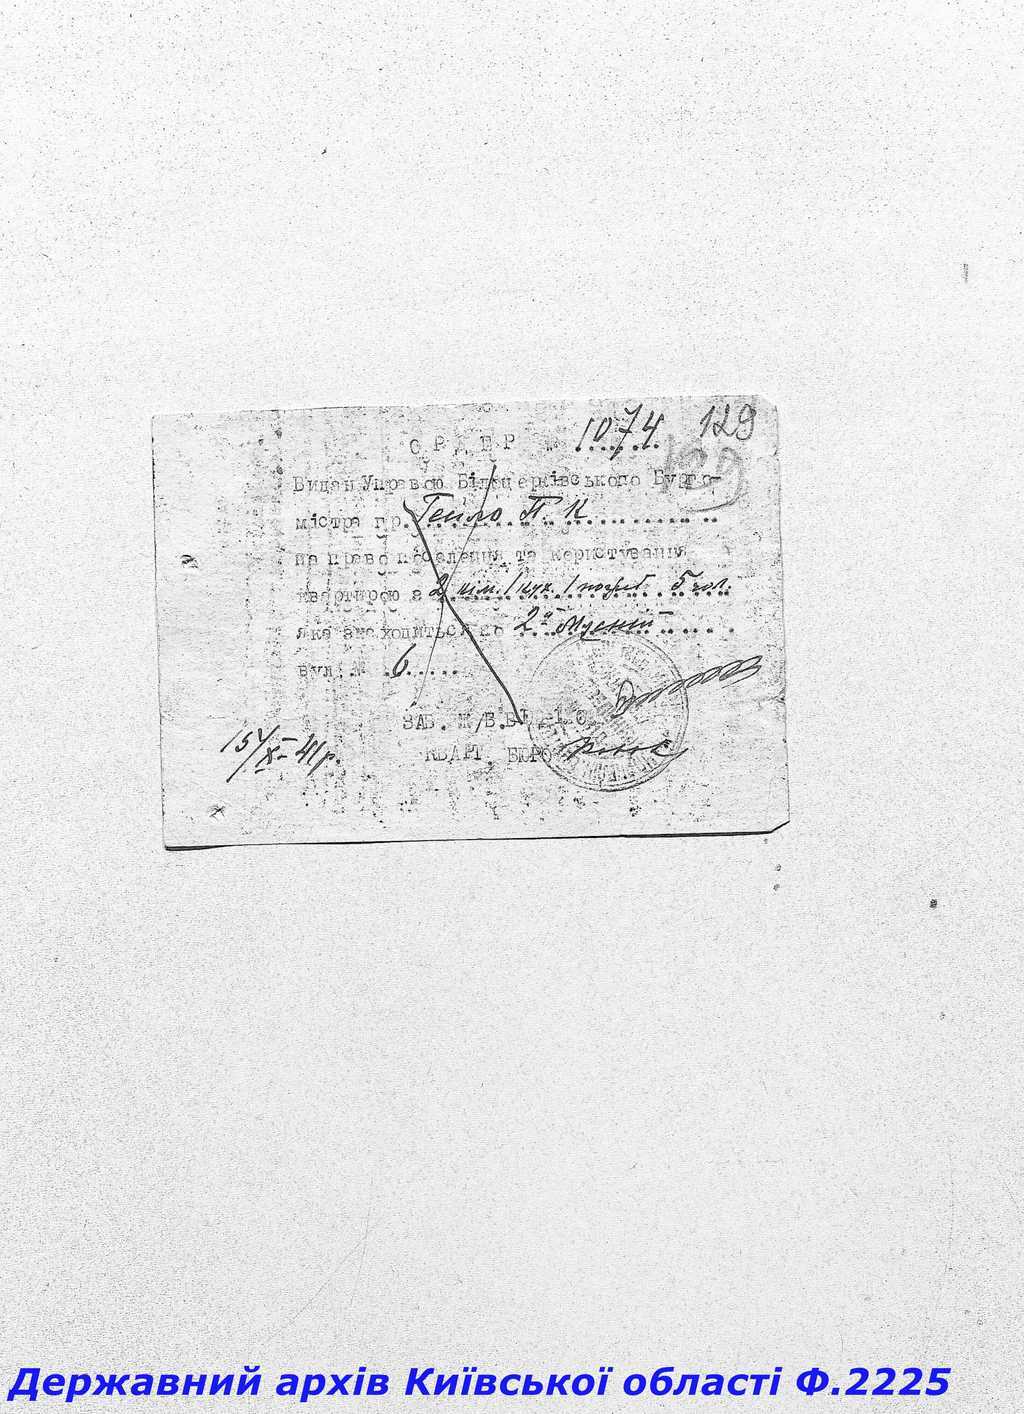 129
ОРДЕР 1074
Видан Управою Білоцерківського Бурго-
містра гр. Тепло П. К
на право поселення та користування
квартирою з 2 кім. 1 кух. 1 погріб. 5 чол.
яка знаходиться по 2а
вул. № 6
ЗАВ. Ж/В.
КВАРТ. БЮРО
15/XI-41р.
Державний архів Київської області Ф.2225